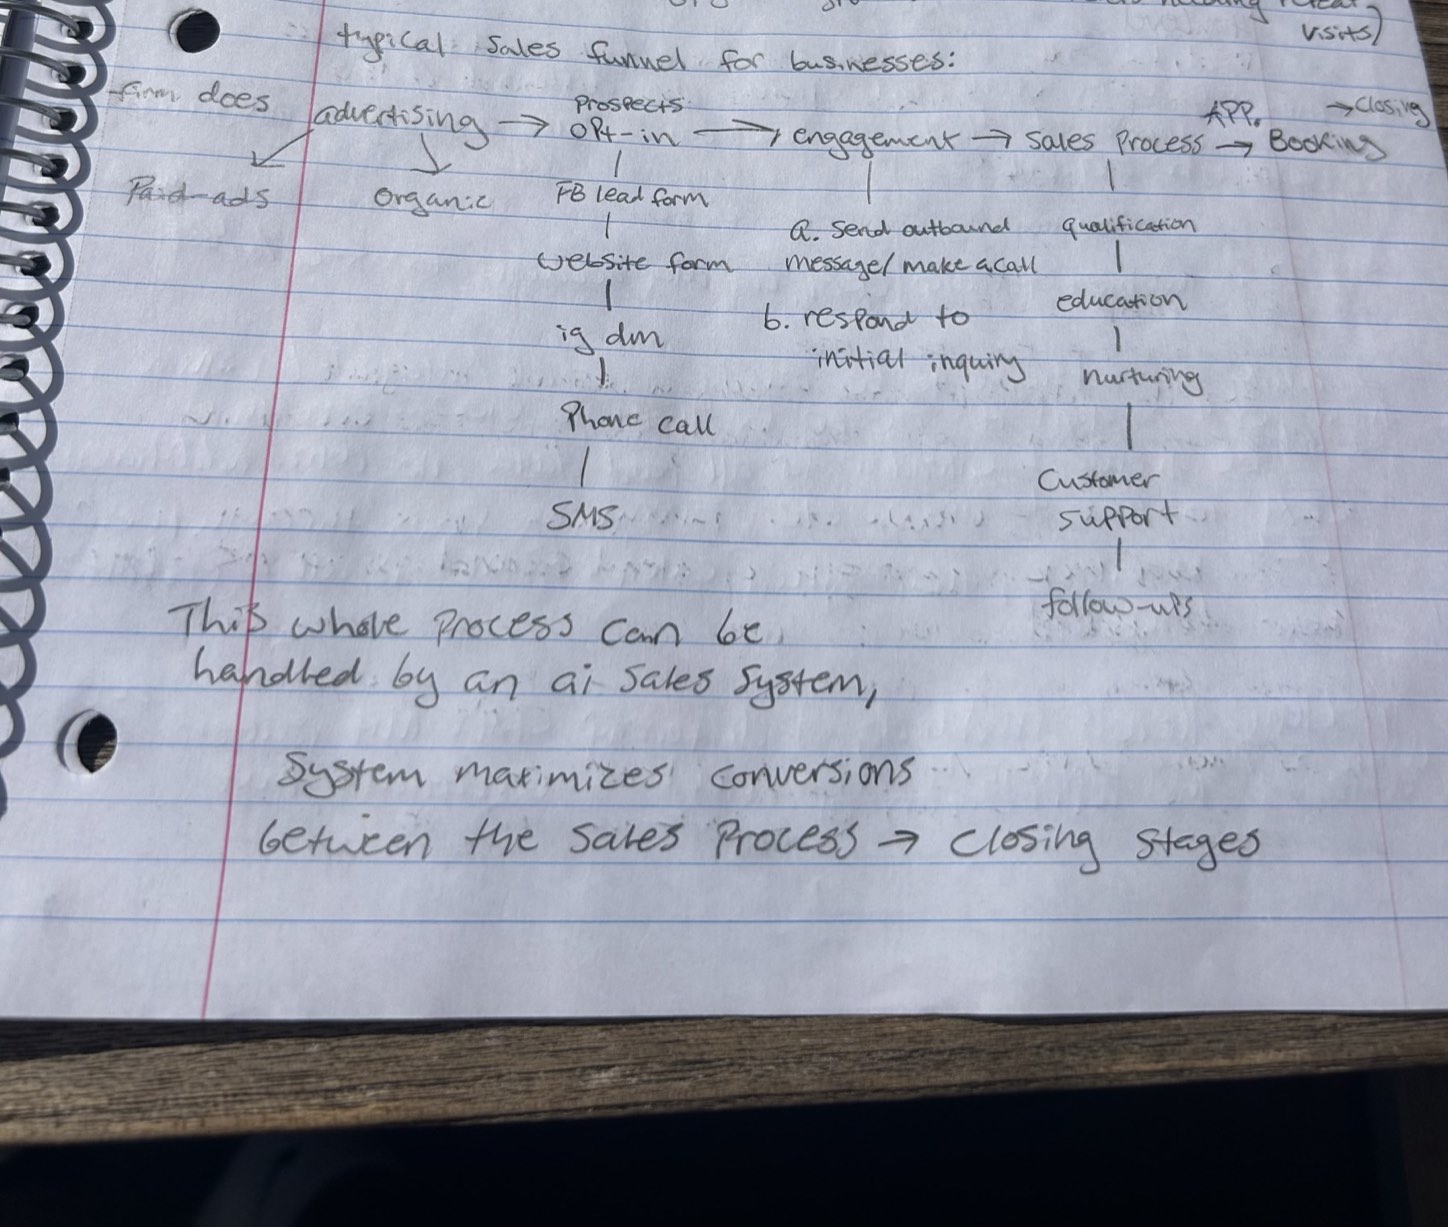 visits)
typical sales funnel for businesses:
firm does advertising → Prospects OPt-in → engagement → Sales Process → APP. Booking → Closing
Paid-ads
Organic
FB lead form
website form
ig dm
Phone call
SMS
a. Send outbound
message/make a call
b. respond to
initial inquiry
qualification
education
nurturing
Customer
support
follow-ups
This whole process can be
handled by an ai sales system,
System maximizes conversions
between the sales process → closing stages